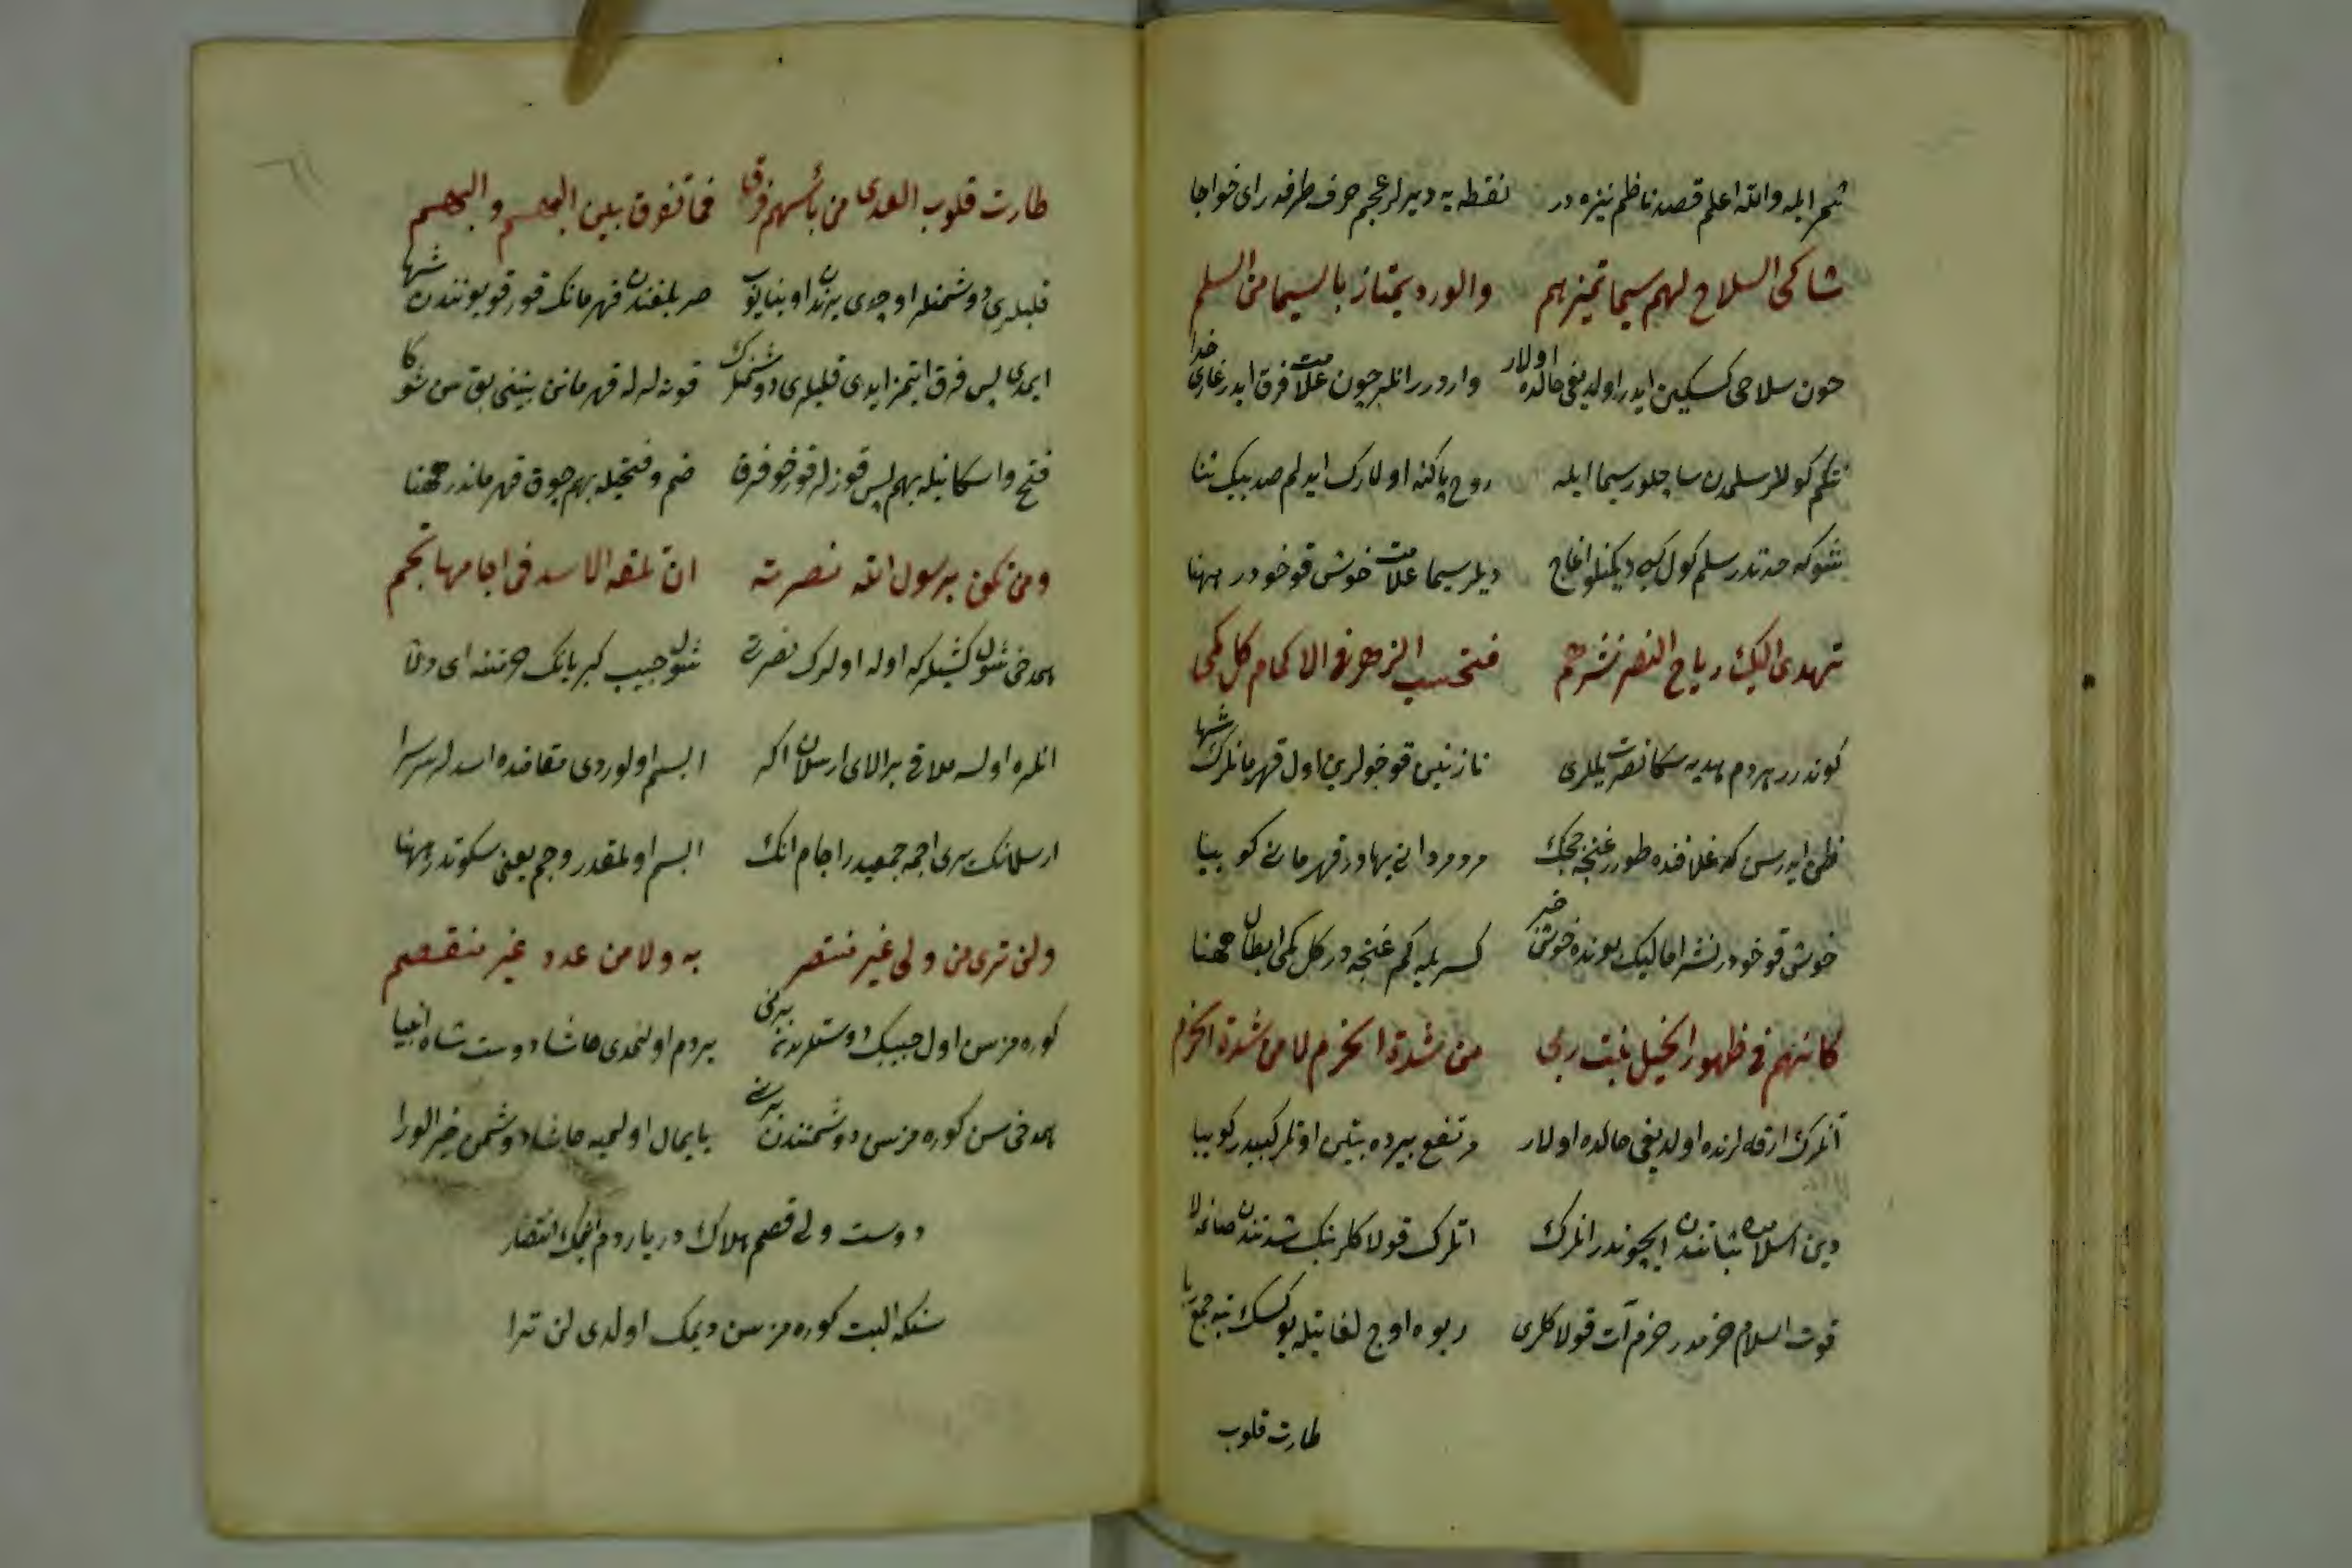 والله اعلم قصد ناظم نيزه در نقطه يه ديرلر عجم حرف طرفدر اى خواجا
شاكى السلاح لهم سيما تميزهم والورد يمتاز بالسيما من السلم
چون سلاحى كسكين ايدر اولديغى حالده اولار واردر انلر چون علامت فرق ايدر غازى خدا
كوللر سلمدن سيما ايله روح پاكنه اولارك ايدلم صد بيك ثنا
شوكه حدتدر سلم كول كبى ديكنلو اغاج ديلر سيما علامت خوش قوخودر مهنا
تهدى اليك رياح النصر نشرهم فتحسب الزهر فى الاكمام كل كمى
كوندرر هردم هديه سكا نصرت يللرى نازنين قوخولرين اول قهرمانلرك شها
ظن ايدرسن كه غلافنده طورر غنچه چچك مرد مردانى بهادر قهرمانى كوييا
خوش قوخودر نشر اما ليك بونده خوش خبر كسريله كم غنچه در كل كمى ابطال مهنا
كانهم فى ظهور الخيل نبت ربى من شدة الحزم لا من شدة الحزم
آتلرك ارقه لرنده اولديغى حالده اولار مرتفع يرده بيتن اوتلر كبيدر كوييا
دين اسلامده ثباتندن ايچوندر انلرك اتلرك قولاكلرينك شدتندن صانمه لا
قوت اسلام حزمدر حزم آت قولاكلرى ربوه اوج لغاتيله يوكسك تپه جمع ربا
طارت قلوب
طارت قلوب العدى من بأسهم فرقا فما تفرق بين البهم والبهم
قلبلرى دوشمنلر اوچدى يرندن اوينايوب صربلغندن قهرمانك قورقوبوندن شها
ايمدى پس فرق ايتمز ايدى قلبلرى دوشمنلرك قوزله له قهرمانن بينى بق سن شوكا
فتح واسكانيله بهم پس قوزلر قورخو فرق ضم وفتحيله بهم چوق قهرماندر مهنا
ومن تكن برسول الله نصرته ان تلقه الاسد فى اجامها تجم
هم دخى شول كشيلر كه اوله اولرك نصرتى شول حبيب كبريانك حرمتنه اى دلا
انلره اولسه ملاقى بر الاى ارسلان اكر ابسم اولوردى مقامنده اسدلر سرسرا
ارسلانك يرى اجمه جمعيدر اجام انك ابسم اولمقدر وجم يعنى سكوتدر مهنا
ولن ترى من ولى غير منتصر به ولا من عدو غير منقصم
كوره مزسن اول حبيبك دوستلرندن برنى يردم اولنمدى حاشا دوست شاه انبيا
هم دخى سن كوره مزسن دوشمنندن برنى پايمال اولميه حاشا دوشمن خير الورا
دوست ولى قصم هلاك در يارد م انتصار
سنكه البت كوره مزسن ديمك اولدى لن ترا